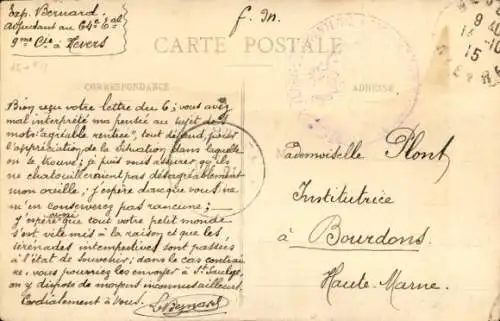 Exp. Bernard,
Adjudant au 64e Tal
9me Cie à Nevers
f. m.
CARTE POSTALE
CORRESPONDANCE
ADRESSE
Bien reçu votre lettre du 6; vous avez
mal interprété ma pensée au sujet des
mots "agréable rentrée", tout dépend, pour
l'appréciation de la situation dans laquelle
on se trouve; je puis vous assurer qu'ils
ne chatouilleraient pas désagréablement
mon oreille; j'espère donc que vous ne
m'en conserverez pas rancune;
J'espère aussi que tout votre petit monde
s'est vite mis à la raison et que les
sérénades intempestives sont passées
à l'état de souvenir; dans le cas contrai
re, vous pourriez les envoyer à St Saulge,
on y dispose de moyens inconnus ailleurs.
Cordialement à vous. LBernard
Mademoiselle Plont
Institutrice
à Bourdons.
Haute-Marne.